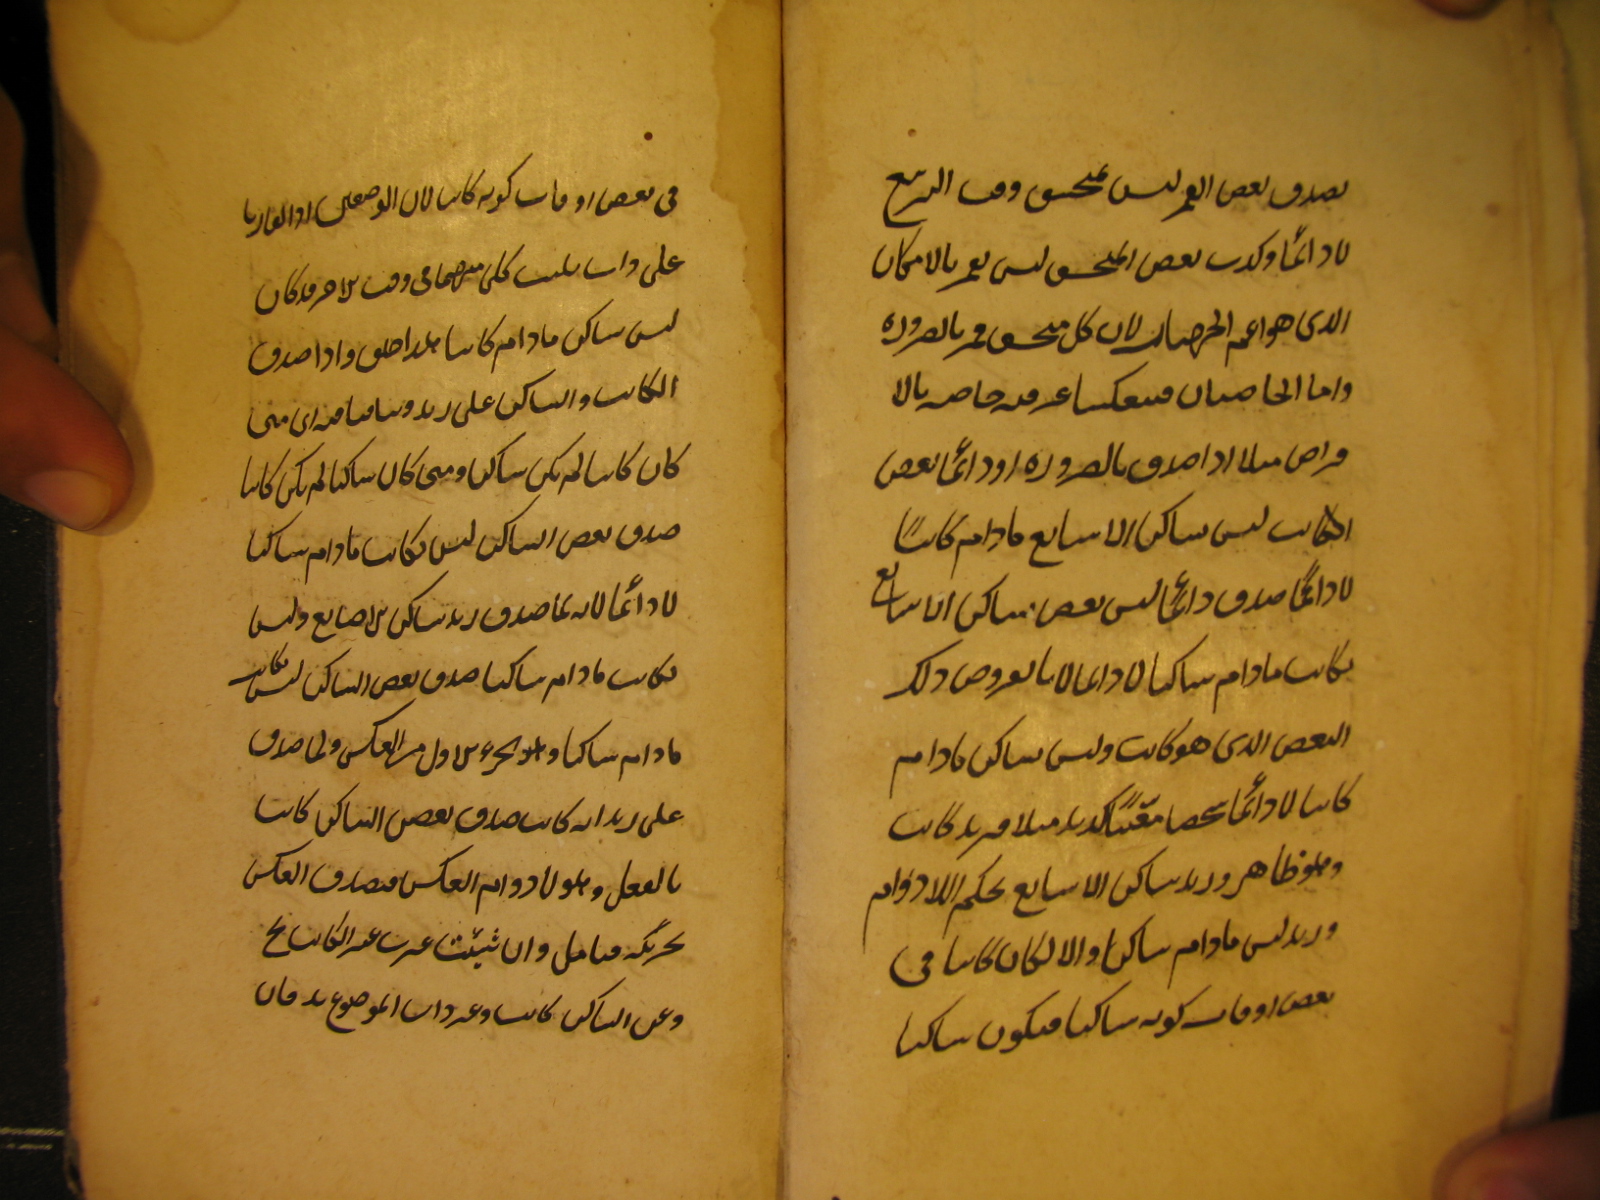 يصدق بعض القمر ليس بمنخسف وقت التربيع
لا دائما وكذب بعض المنخسف ليس بقمر بالامكان
الذى هو اعم الجهات لان كل منخسف قمر بالضرورة
واما الخاصتان فينعكسا عرفية خاصة بالا
فتراض مثلا اذا صدق بالضرورة او دائما بعض
الكاتب ليس ساكن الاصابع مادام كاتبا
لا دائما صدق دائما ليس بعض ساكن الاصابع
بكاتب مادام ساكنا لا دائما لانا نفرض ذلك
البعض الذى هو كاتب وليس ساكن مادام
كاتبا لا دائما شخصا معينا كزيد مثلا فزيد كاتب
وهو ظاهر وزيد ساكن الاصابع بحكم اللادوام
وزيد ليس مادام ساكنا والا لكان كاتبا فى
بعض اوقات كونه ساكنا فيكون ساكنا
فى بعض اوقات كونه كاتبا لان الوصفين اذا تقارنا
على ذات يثبت كل منهما فى وقت الاخر وقد كان
ليس ساكن مادام كاتبا هذا خلف واذا صدق
الكاتب والساكن على زيد وتنافيا فيه اى متى
كان كاتبا لم يكن ساكن ومتى كان ساكنا لم يكن كاتبا
صدق بعض الساكن ليس بكاتب مادام ساكنا
لا دائما لانه لما صدق زيد ساكن الاصابع وليس
بكاتب مادام ساكنا صدق بعض الساكن ليس بكاتب
مادام ساكنا وهو الجزء الاول من العكس ولما صدق
على زيد انه كاتب صدق بعض الساكن كاتب
بالفعل وهو لادوام العكس فيصدق العكس
بجزئيه فتامل وان شيئت عبرت عن الكاتب بج
وعن الساكن كاتب وعن ذات الموضوع بد فان